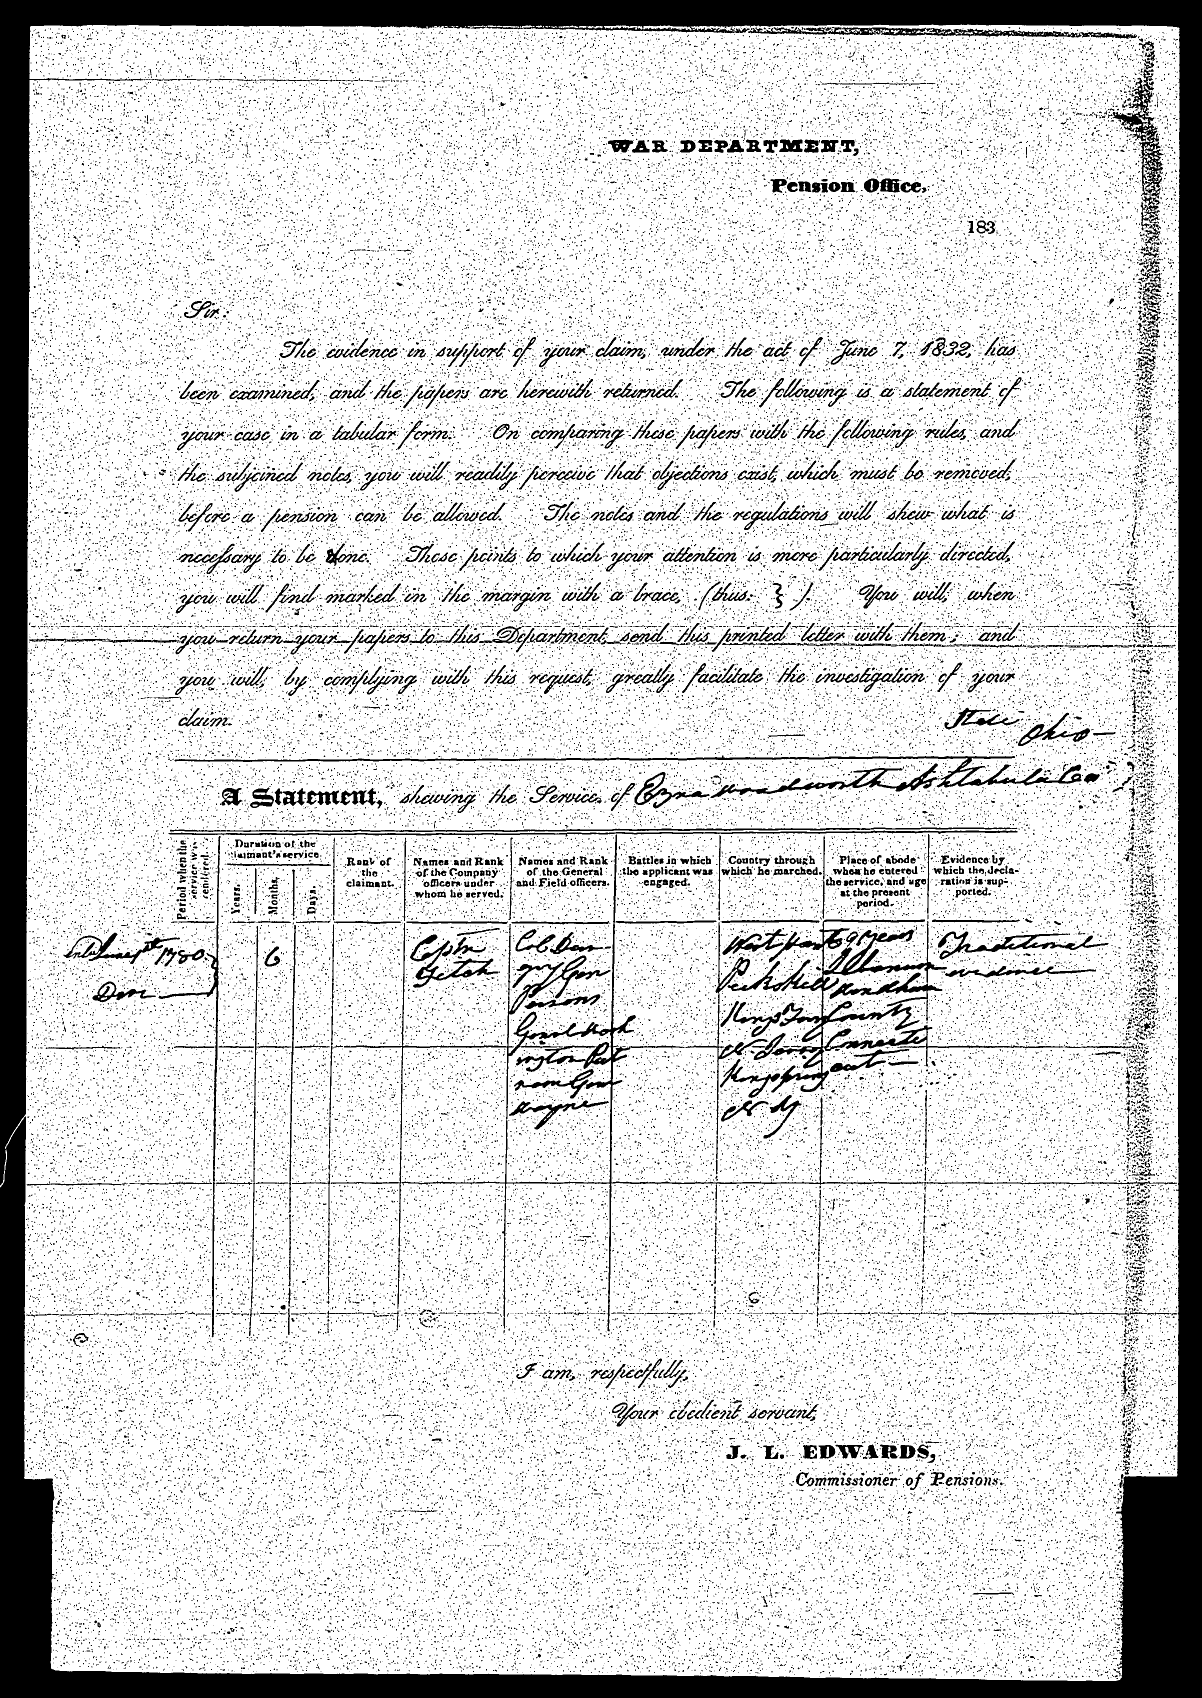 WAR DEPARTMENT,
Pension Office.
183
Sir:
The evidence in support of your claim, under the act of June 7, 1832, has
been examined, and the papers are herewith returned. The following is a statement of
your case in a tabular form. On comparing these papers with the following rules, and
the subjoined notes, you will readily perceive that objections exist, which must be removed,
before a pension can be allowed. The notes and the regulations will shew what is
necessary to be done. Those points to which your attention is more particularly directed,
you will find marked in the margin with a brace, (thus: } ). You will, when
you return your papers to this Department, send this printed letter with them; and
you will, by complying with this request, greatly facilitate the investigation of your
claim.
State Ohio
A Statement, shewing the Service of Ezra Wadsworth Ashtabula Co
Period when the service was rendered.
Duration of the claimant's service.
Years.
Months.
Days.
Rank of
the
claimant.
Names and Rank
of the Company
officers under
whom he served.
Names and Rank
of the General
and Field officers.
Battles in which
the applicant was
engaged.
Country through
which he marched.
Place of abode
when he entered
the service, and age
at the present
period.
Evidence by
which the declaration is supported.
June 1st 1780
6
Captn
Fitch
Col
Gen
Persons
Genl Wash
ington Put
nam Gen
Wayne
West Point
Peekskill
Kings Ferry
N. Jersey
N Y
69 years
Lebanon
Windham
County
Connecti
cut
Traditional
evidence
I am, respectfully,
Your obedient servant,
J. L. EDWARDS,
Commissioner of Pensions.